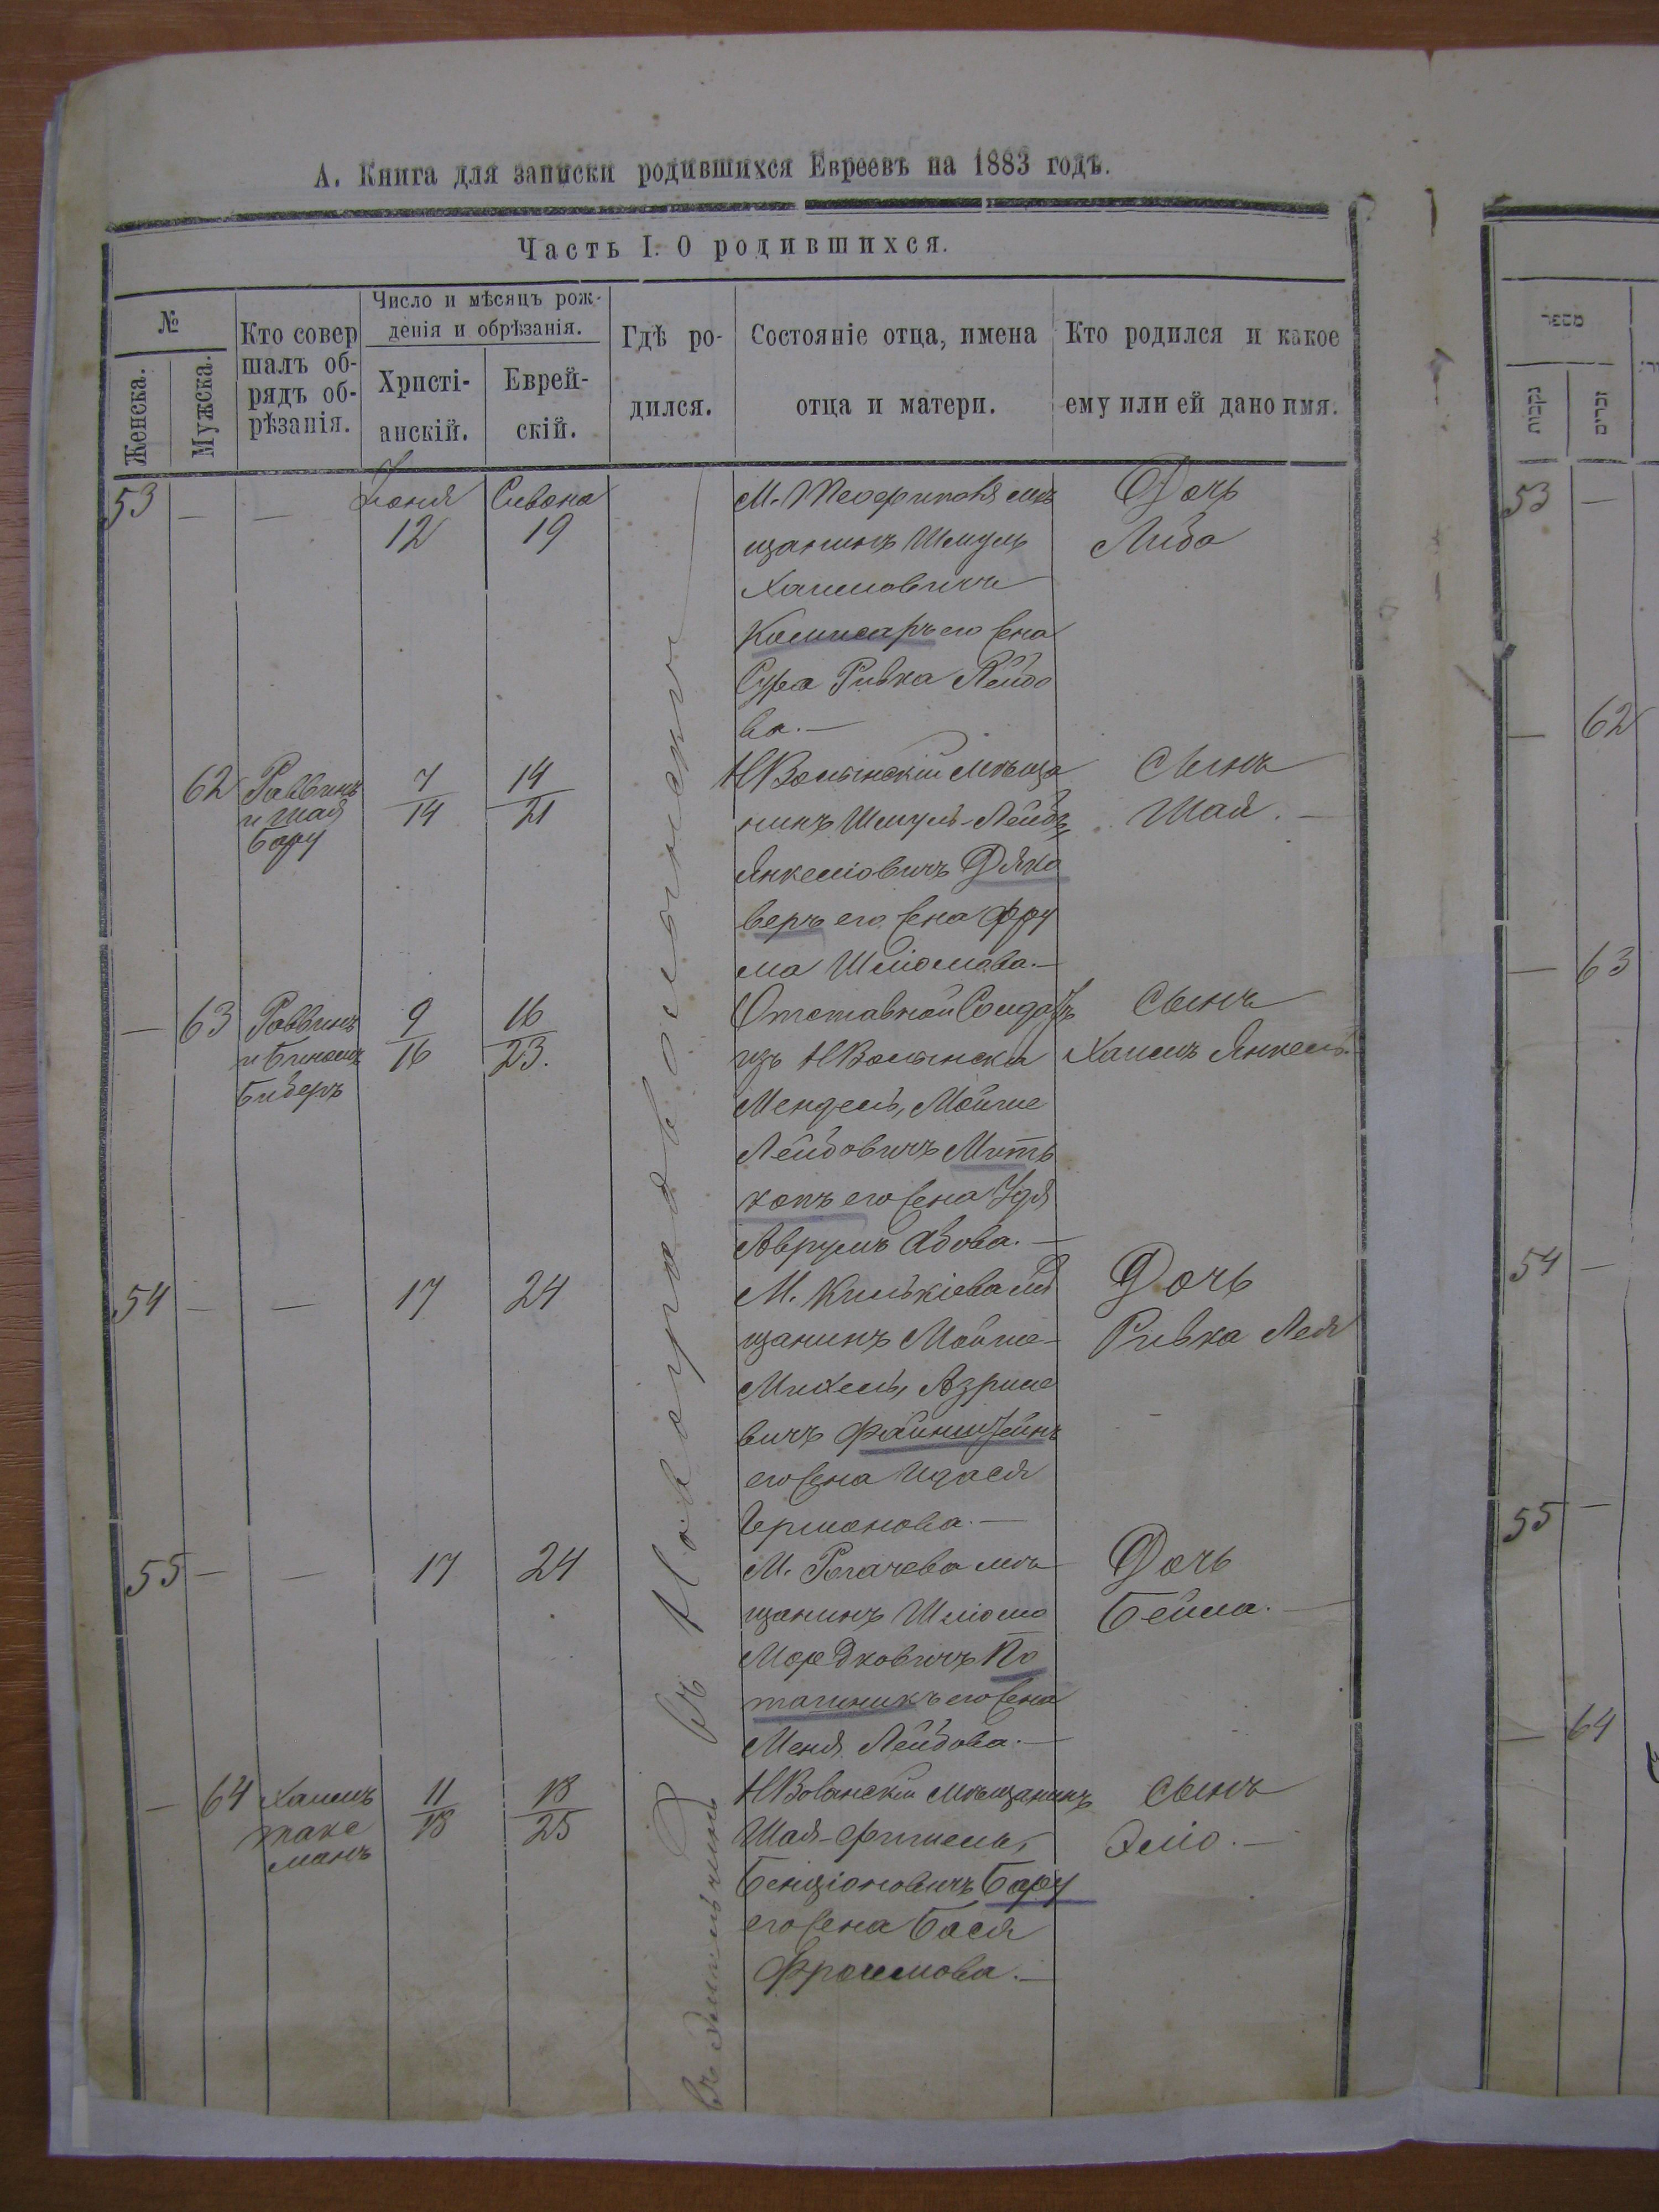 А. Книга для записки родившихся Евреевъ на 1883 годъ.
Часть I. О родившихся.
№
Женска.
Мужска.
Кто совер
шалъ об-
рядъ об-
рѣзанія.
Число и мѣсяцъ рож-
денія и обрѣзанія.
Христі-
анскій.
Еврей-
скій.
Гдѣ ро-
дился.
Состояніе отца, имена
отца и матери.
Кто родился и какое
ему или ей дано имя.
מספר
נקבות
זכרים
въ Новоградволынскѣ
53 — —
Іюня
12
Сивана
19
щанинъ Шмуль
Хаимовичъ
Комисаръ его жена
Сура Ривка Лейбо
ва. —
Дочь
Либа
62
Раввинъ
и Шая
Бару
7
14
14
21
НВолынскій мѣща
нинъ Шмуль-Лейбъ
Янкеліовичъ Дяхо
веръ его жена Фру
ма Шліомова. —
Сынъ
Шая. —
— 63
Раввинъ
и Биномъ
Биберъ
9
16
16
23.
Отставной Солдатъ
изъ НВолынска
Мендель, Мойше
Лейбовичъ Мить
его жена Удя
Аврумъ Абова. —
Сынъ
Хаимъ Янкель.
54 — —
17
24
М. Килькіева мѣ
щанинъ Мойше-
Михель, Азриле
вичъ Файнштейнъ
его жена
Гершонова. —
Дочь
Ривка Лея
55 — —
17
24
М. Рогачева мѣ
щанинъ Шліома
Мордковичъ По
ташникъ его жена
Меня Лейбова. —
Дочь
Бейла. —
— 64
Хаимъ
Такс
манъ
11
18
18
25
НВолынскій мѣщанинъ
Шая-Фишель,
Бенціоновичъ Бару
его жена Бася
Фроимова. —
Сынъ
Эліо. —
53 —
— 62
— 63
54 —
55 —
— 64